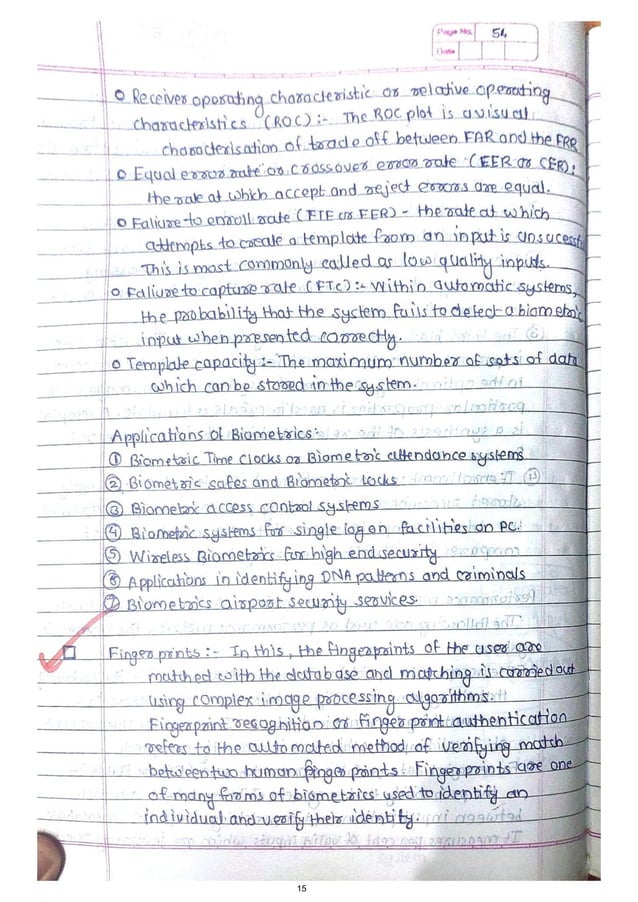 Page No. 54
Date
Receiver operating characteristic or relative operating
characteristics (ROC) :- The ROC plot is a visual
characterisation of trade off between FAR and the FRR
Equal error rate or crossover error rate (EER or CER):
the rate at which accept and reject errors are equal.
Faliure to enroll rate (FTE or FER) - the rate at which
attempts to create a template from an input is unsucessf
This is most commonly called as low quality inputs.
Faliure to capture rate (FTC) :- Within automatic systems,
the probability that the system fails to detect a biometric
input when presented correctly.
Template capacity :- The maximum number of sets of data
which can be stored in the system.
Applications of Biometrics:
① Biometric Time clocks or Biometric attendance systems
② Biometric safes and Biometric locks
③ Biometric access control systems
④ Biometric systems for single log on facilities on PC.
⑤ Wireless Biometrics for high end security
⑥ Applications in identifying DNA patterns and criminals
⑦ Biometrics airport security services.
Fingerprints :- In this, the fingerprints of the user are
matched with the database and matching is carried out
using complex image processing algorithms.
Fingerprint recoghition or finger print authentication
refers to the automated method of verifying match
between two human finger prints. Fingerprints are one
of many forms of biometrics used to identify an
individual and verify their identity.
15